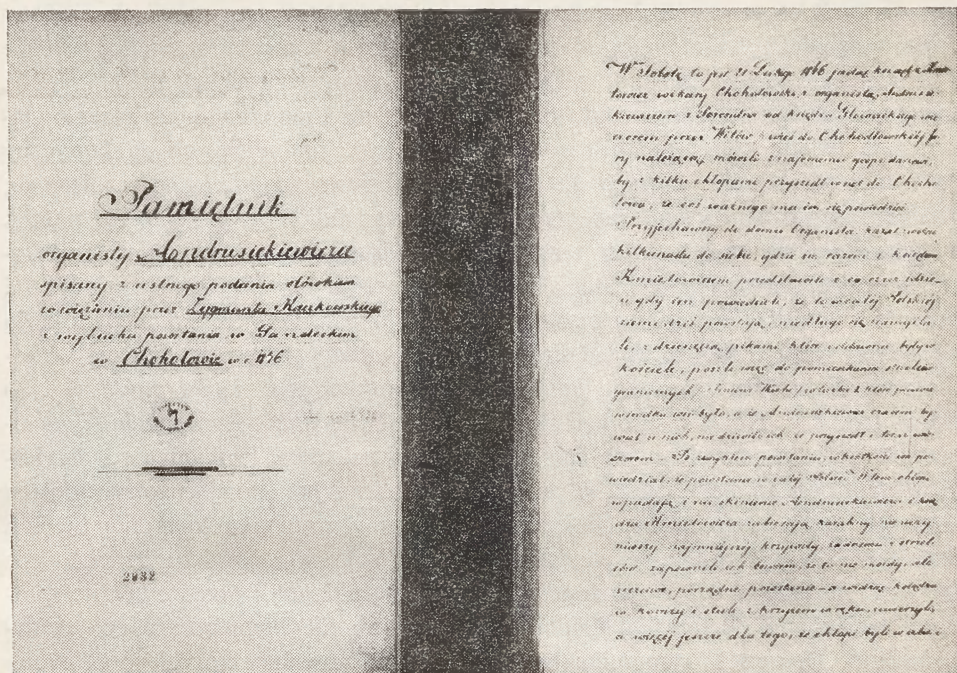 Pamiętnik
organisty Andrusickiewicza
spisany z ustnego podania ołówkiem
w więzieniu przez Zygmunta Kaczkowskiego
z wybuchu powstania w Sandeckim
w Chochołowie w r. 1846
2832
W Sobotę to jest 21 Lutego 1846 jadąc ksiądz Kmie
towicz wikary Chochołowski, z organistą Andrusi
kiewiczem z od księdza wie
czorem przez Witów / wieś do Chochołowskiej
ny należącą mówili znajomemu gospodarzowi,
by z kilku chłopami przyszedł wnet do Chocho
łowa, że coś ważnego ma im się powiedzieć
Przyjechawszy do domu Organista, kazał
kilkunastu do siebie, gdzie on razem z księdzem
Kmietowiczem przedstawił o co rzecz idzie
i gdy im powiedzieli, że to w całej Polskiej
ziemi dziś powstają, niedługo się namyśla
li, z dziesięcią pikami które
kościele, poszli więc do pomieszkania strażników
granicznych
a że Andrusikiewicz czasem by
wał u nich, nie dziwiło ich że przyszedł i teraz wie
czorem. – Po zwykłem powitaniu, w krótkości im po
wiedział, że powstanie w całej Polsce. Wtem chłopi
wpadają i na skinienie Andrusikiewicza i księ
dza Kmietowicza zabierają karabiny nie uczy
niwszy najmniejszej krzywdy żadnemu z strzel
ców, zapewnili ich bowiem, że to nie mordy, ale
porządne powstanie – a widząc księdza
w komży i stule z krzyżem w ręku, uwierzyli,
a więcej jeszcze dla tego, że chłopi byli